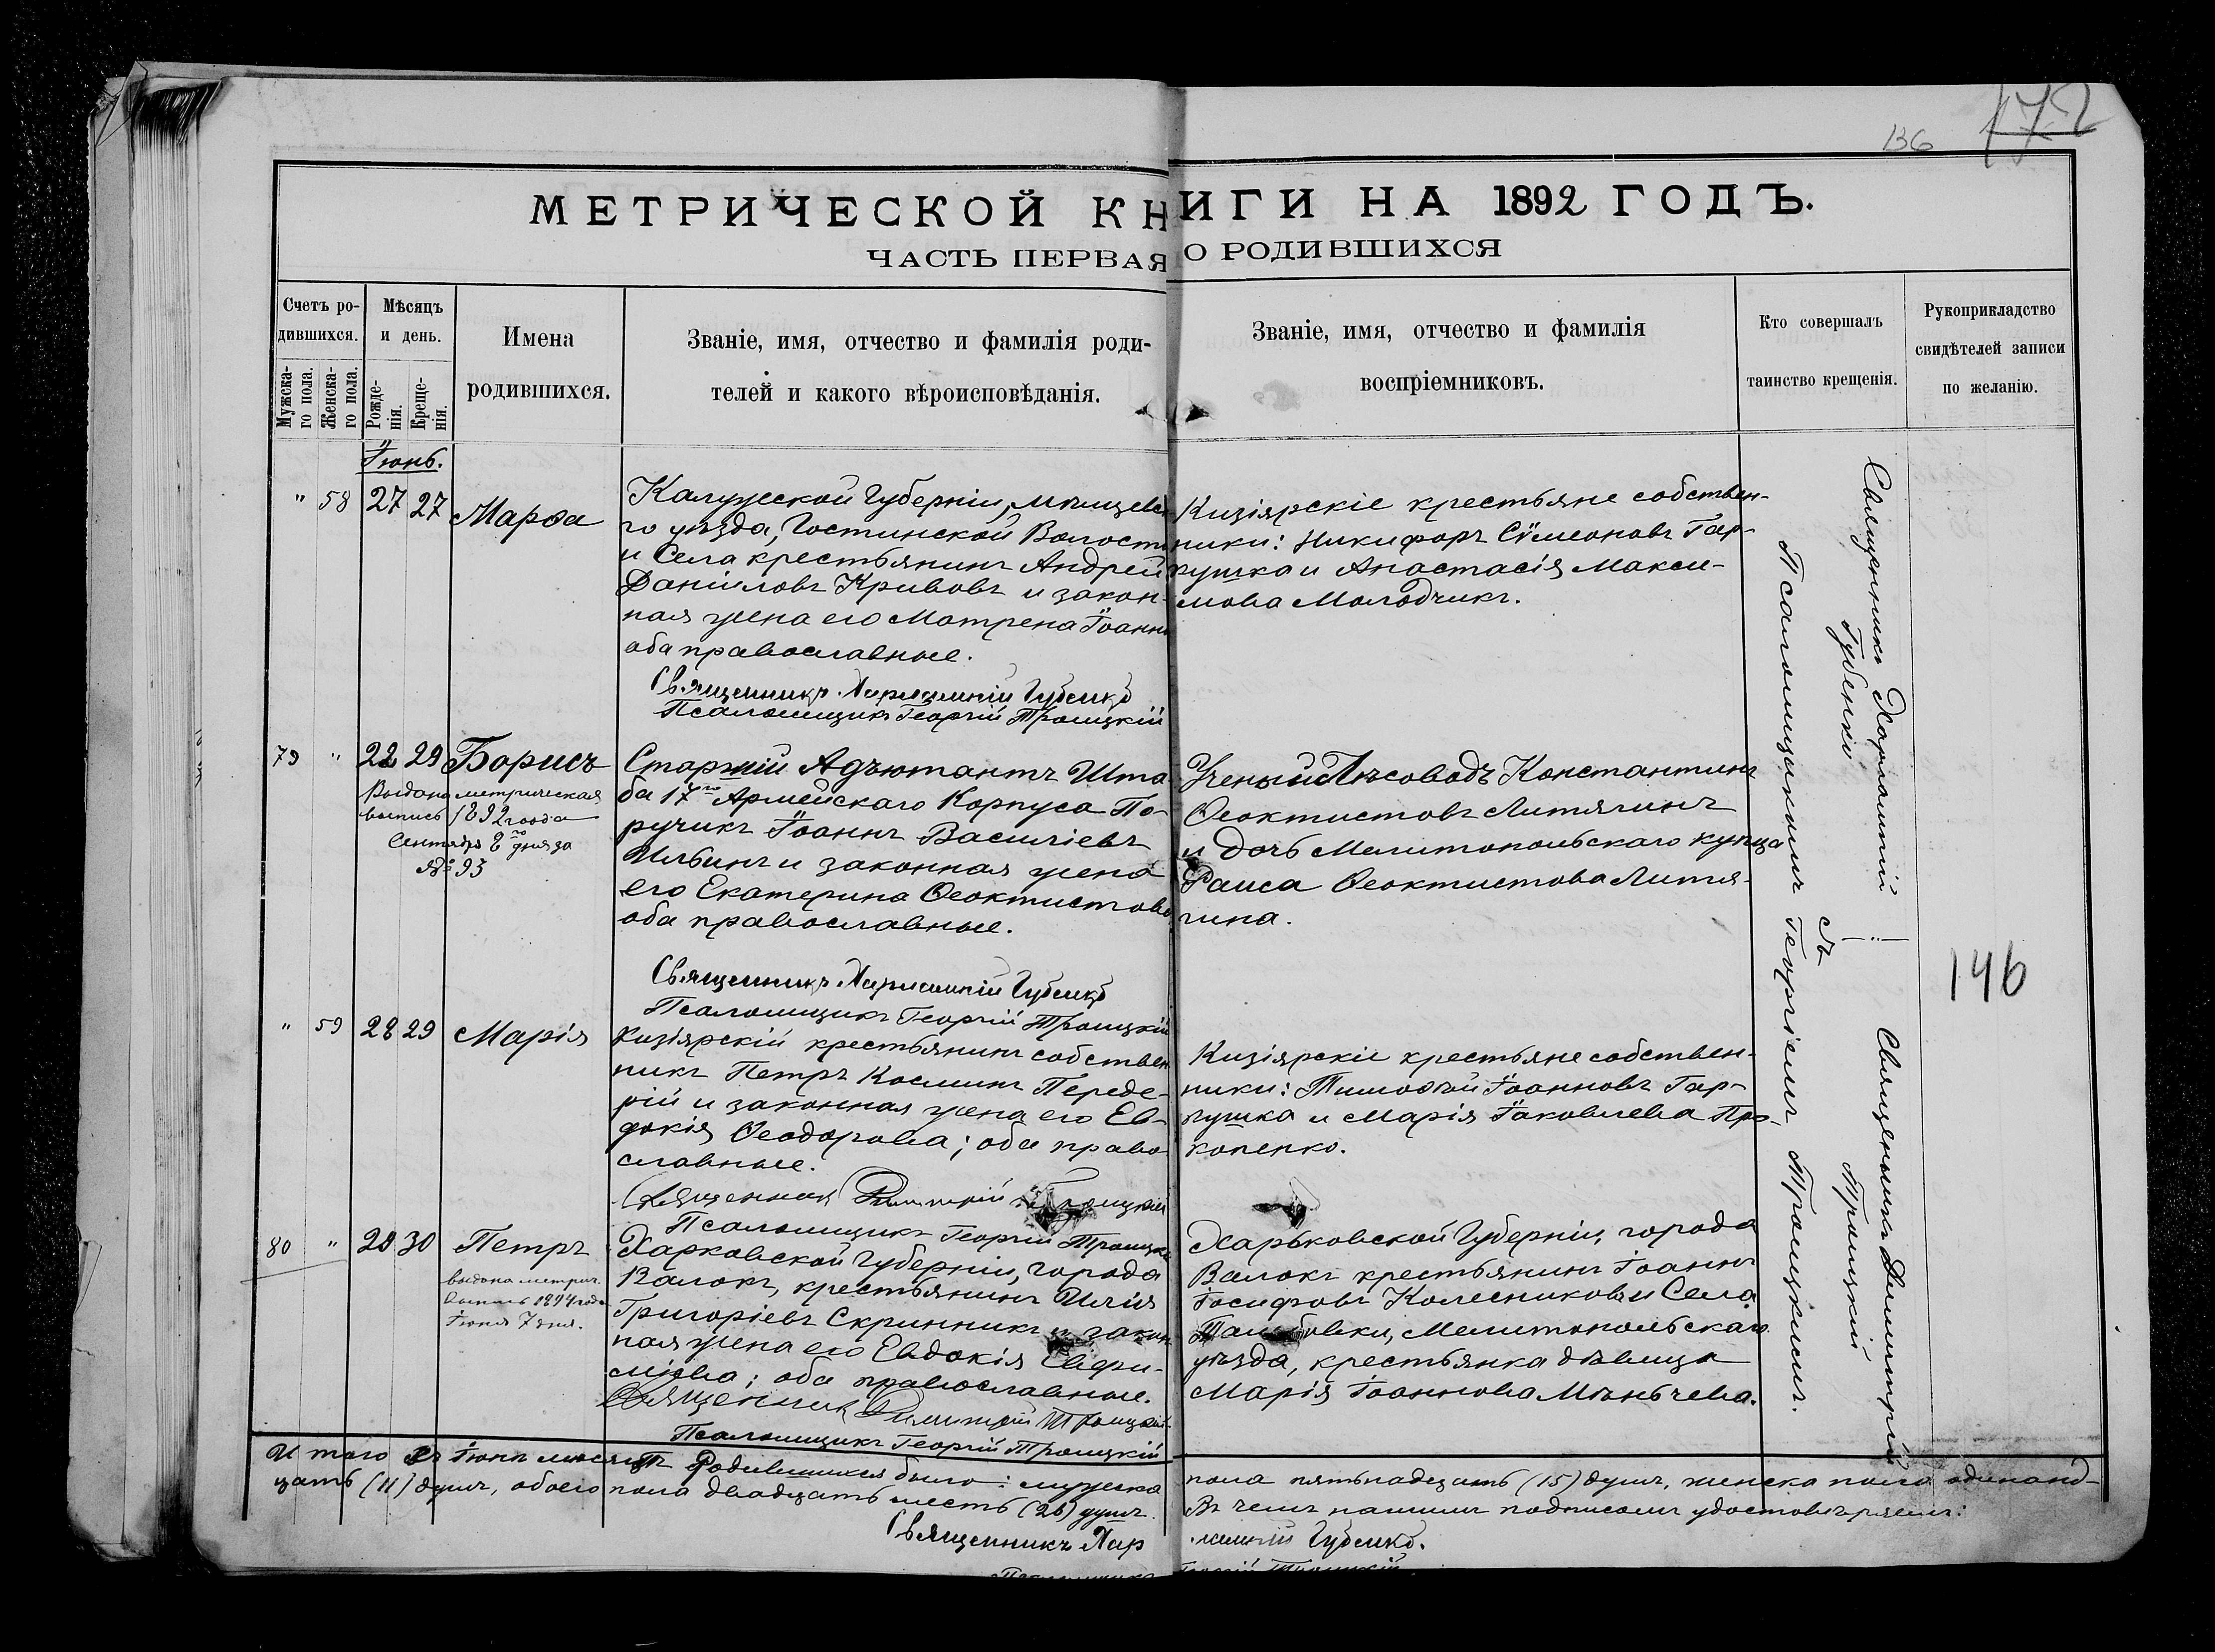 172
136
МЕТРИЧЕСКОЙ КНИГИ НА 1892 ГОДЪ.
ЧАСТЬ ПЕРВАЯ О РОДИВШИХСЯ
Счетъ ро-
дившихся.
Мужска-
го пола.
Женска-
го пола.
Мѣсяцъ
и день.
Рожде-
нія.
Креще-
нія.
Имена
родившихся.
Званіе, имя, отчество и фамилія роди-
телей и какого вѣроисповѣданія.
Званіе, имя, отчество и фамилія
воспріемниковъ.
Кто совершалъ
таинство крещенія.
Рукоприкладство
свидѣтелей записи
по желанію.
Іюнь.
" 58 27 27 Марѳа
Калужской Губерніи, Мещевск
го уѣзда, Гостинской Волости
и Села крестьянинъ Андрей
Даніиловъ Кривовъ и закон-
ная жена его Матрена Іоанн
оба православные.
Священникъ Харлампій Губенко
Псаломщикъ Георгій Троицкій
Кизіярскіе крестьяне собствен-
ники: Никифоръ Сѵмеоновъ Гар-
кушка и Анастасія Макси-
мова Молодчикъ.
79 " 22 29 Борисъ
Выдана метрическая
выпись 1892 года
Сентября 2 го дня за
№ 93
Старшій Адъютантъ Шта
ба 17го Армейскаго Корпуса По-
ручикъ Іоаннъ Василіевъ
Ильинъ и законная жена
его Екатерина Ѳеоктистова
оба православные.
Священникъ Харлампій Губенко
Псаломщикъ Георгій Троицкій
Ученый Лѣсоводъ Константинъ
Ѳеоктистовъ Литягинъ
и дочь Мелитопольскаго купца
Раиса Ѳеоктистова Литя-
гина.
" 59 28 29 Марія
Кизіярскій крестьянинъ собствен
никъ Петръ Косминъ Переде-
рій и законная жена его Ев-
докія Ѳеодорова; оба право-
славные.
Священникъ Димитрій Троицкій
Псаломщикъ Георгій Троицкій
Кизіярскіе крестьяне собствен-
ники: Тимоѳей Іоанновъ Гар-
кушка и Марія Іаковлева Про-
копенко.
80 " 29 30 Петръ
выдана метрич.
выпись 1894 года
Іюня 7 дня.
Харковской Губерніи, города
Валокъ, крестьянинъ Илія
Григоріевъ Скринникъ и закон
ная жена его Евдокія Евфи-
міева; оба православные.
Священникъ Димитрій Троицкій
Псаломщикъ Георгій Троицкій
Харьковской Губерніи, города
Валокъ крестьянинъ Іоаннъ
Іосифовъ Колесниковъ и Села
Мелитопольскаго
уѣзда, крестьянка дѣвица
Марія Іоаннова Мѣньчева.
Священникъ Харлампій
Губенко
съ
Псаломщикомъ Георгіемъ Троицкимъ.
Священникъ Димитрій
Троицкій
146
Итого въ Іюнѣ мѣсяцѣ Родившихся было: мужска пола пятьнадцать (15) душъ, женска пола одиннад-
цать (11) душъ, обоего пола двадцать шесть (26) душъ. Въ чемъ нашимъ подписомъ удостовѣряемъ:
Священникъ Харлампій Губенко.
Псаломщикъ Георгій Троицкій